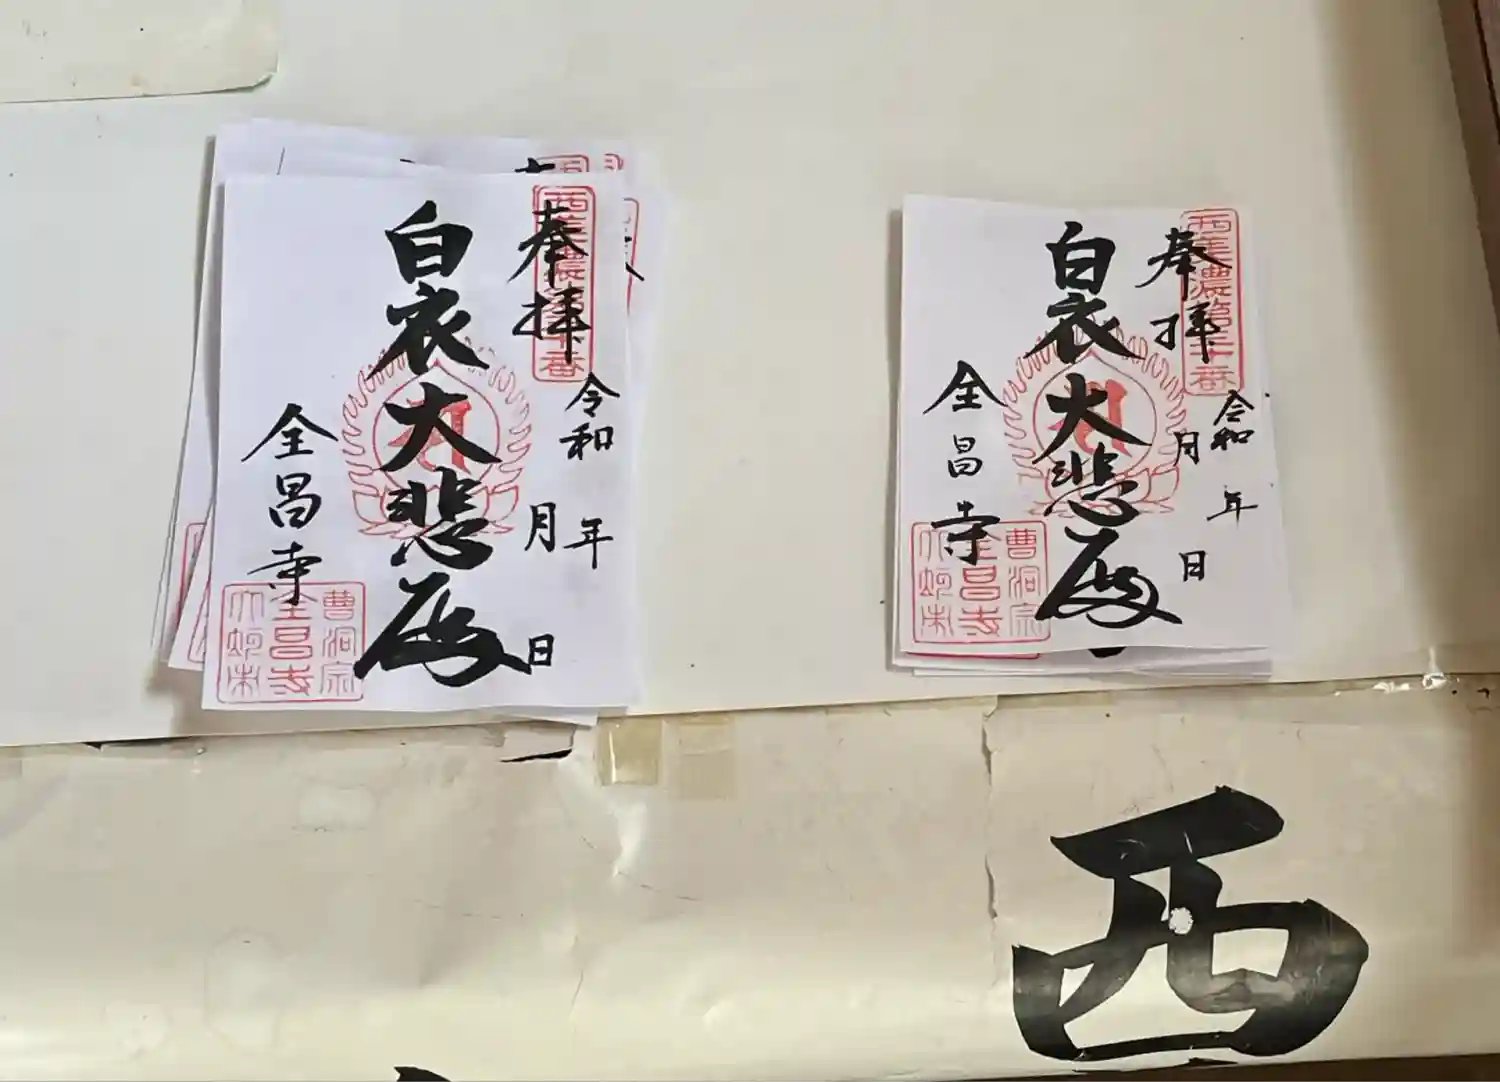 西美濃第十番
奉拝
令和 年
月 日
白衣大悲殿
全昌寺
曹洞宗
全昌寺
西美濃第十番
奉拝
令和 年
月 日
白衣大悲殿
全昌寺
曹洞宗
全昌寺
西